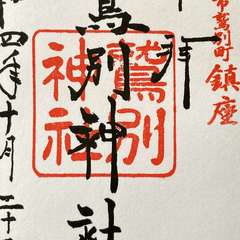 市鷲別町
鎮座
拝
鷲別神社
鷲別
神社
四年十月二十